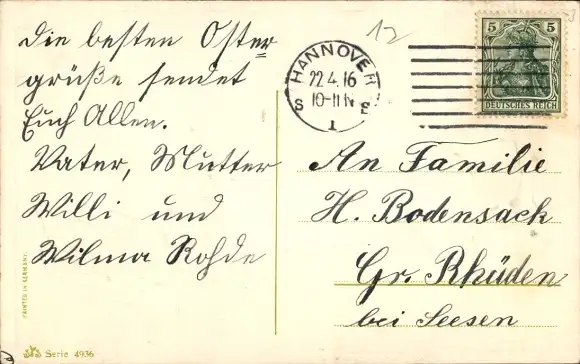 Die besten Oster
grüße sendet
Euch Allen.
Vater, Mutter
Willi und
Wilma Rohde
12
HANNOVER
22.4.16
10-11 N
S S
1
5 5
DEUTSCHES REICH
An Familie
H. Bodensack
Gr. Rhüden
bei Seesen
PRINTED IN GERMANY
Serie 4936